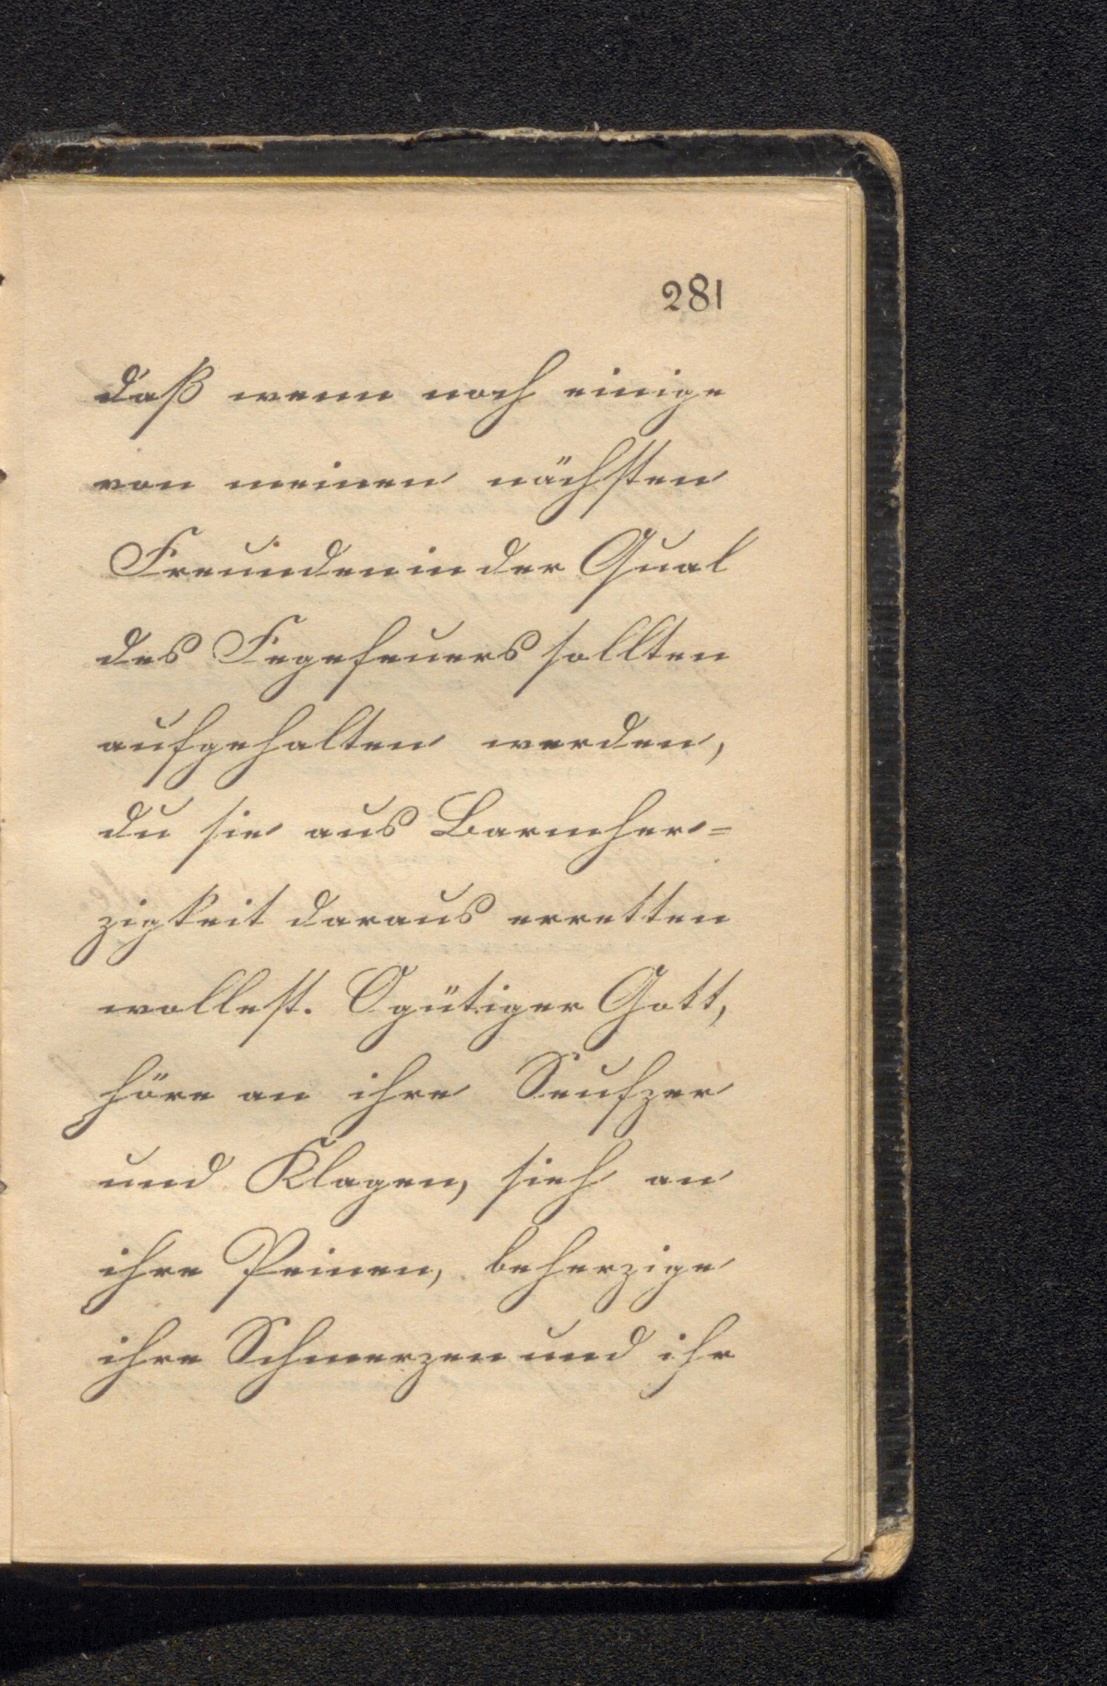 281
daß wenn noch einige
von meinen nächsten
Freunden in der Qual
des Fegefeuers sollten
aufgehalten werden,
du sie aus Barmher=
zigkeit daraus erretten
wollest. O gütiger Gott,
höre an ihre Seufzer
und Klagen, sieh an
ihre Peinen, beherzige
ihre Schmerzen und ihr